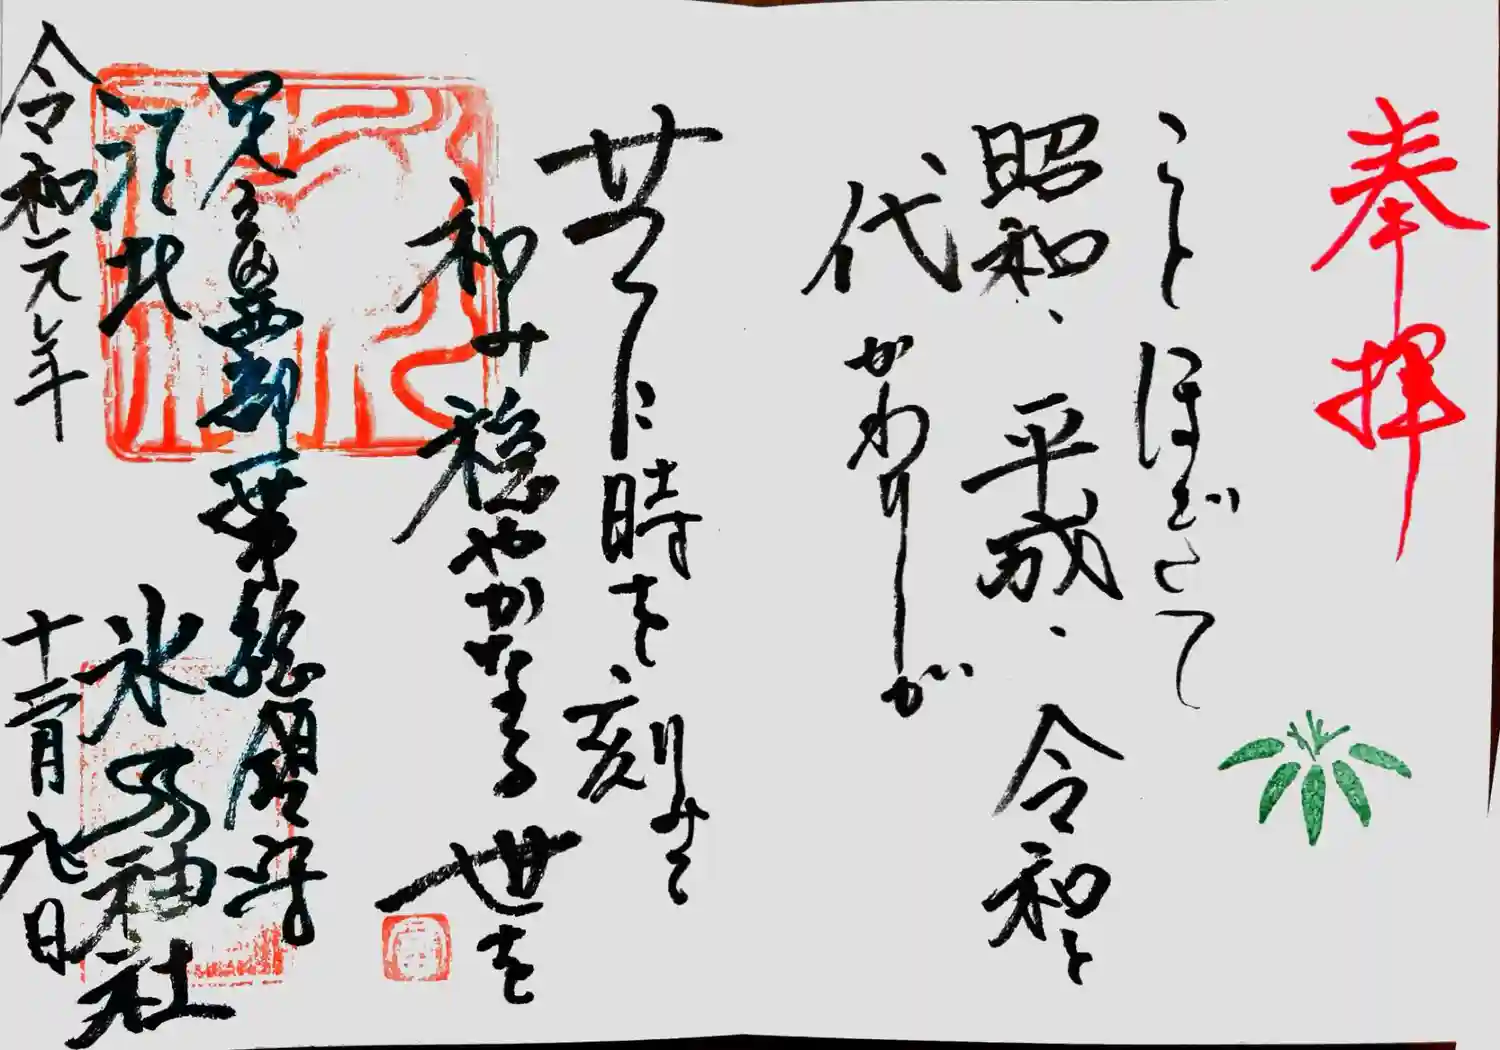 奉拝
ことほぎて
昭和、平成、令和と
代かわりしが
共に時を刻みて
和み穏やかなる世を
足立区西部一帯総鎮守
江北 氷川神社
令和元年 十二月九日